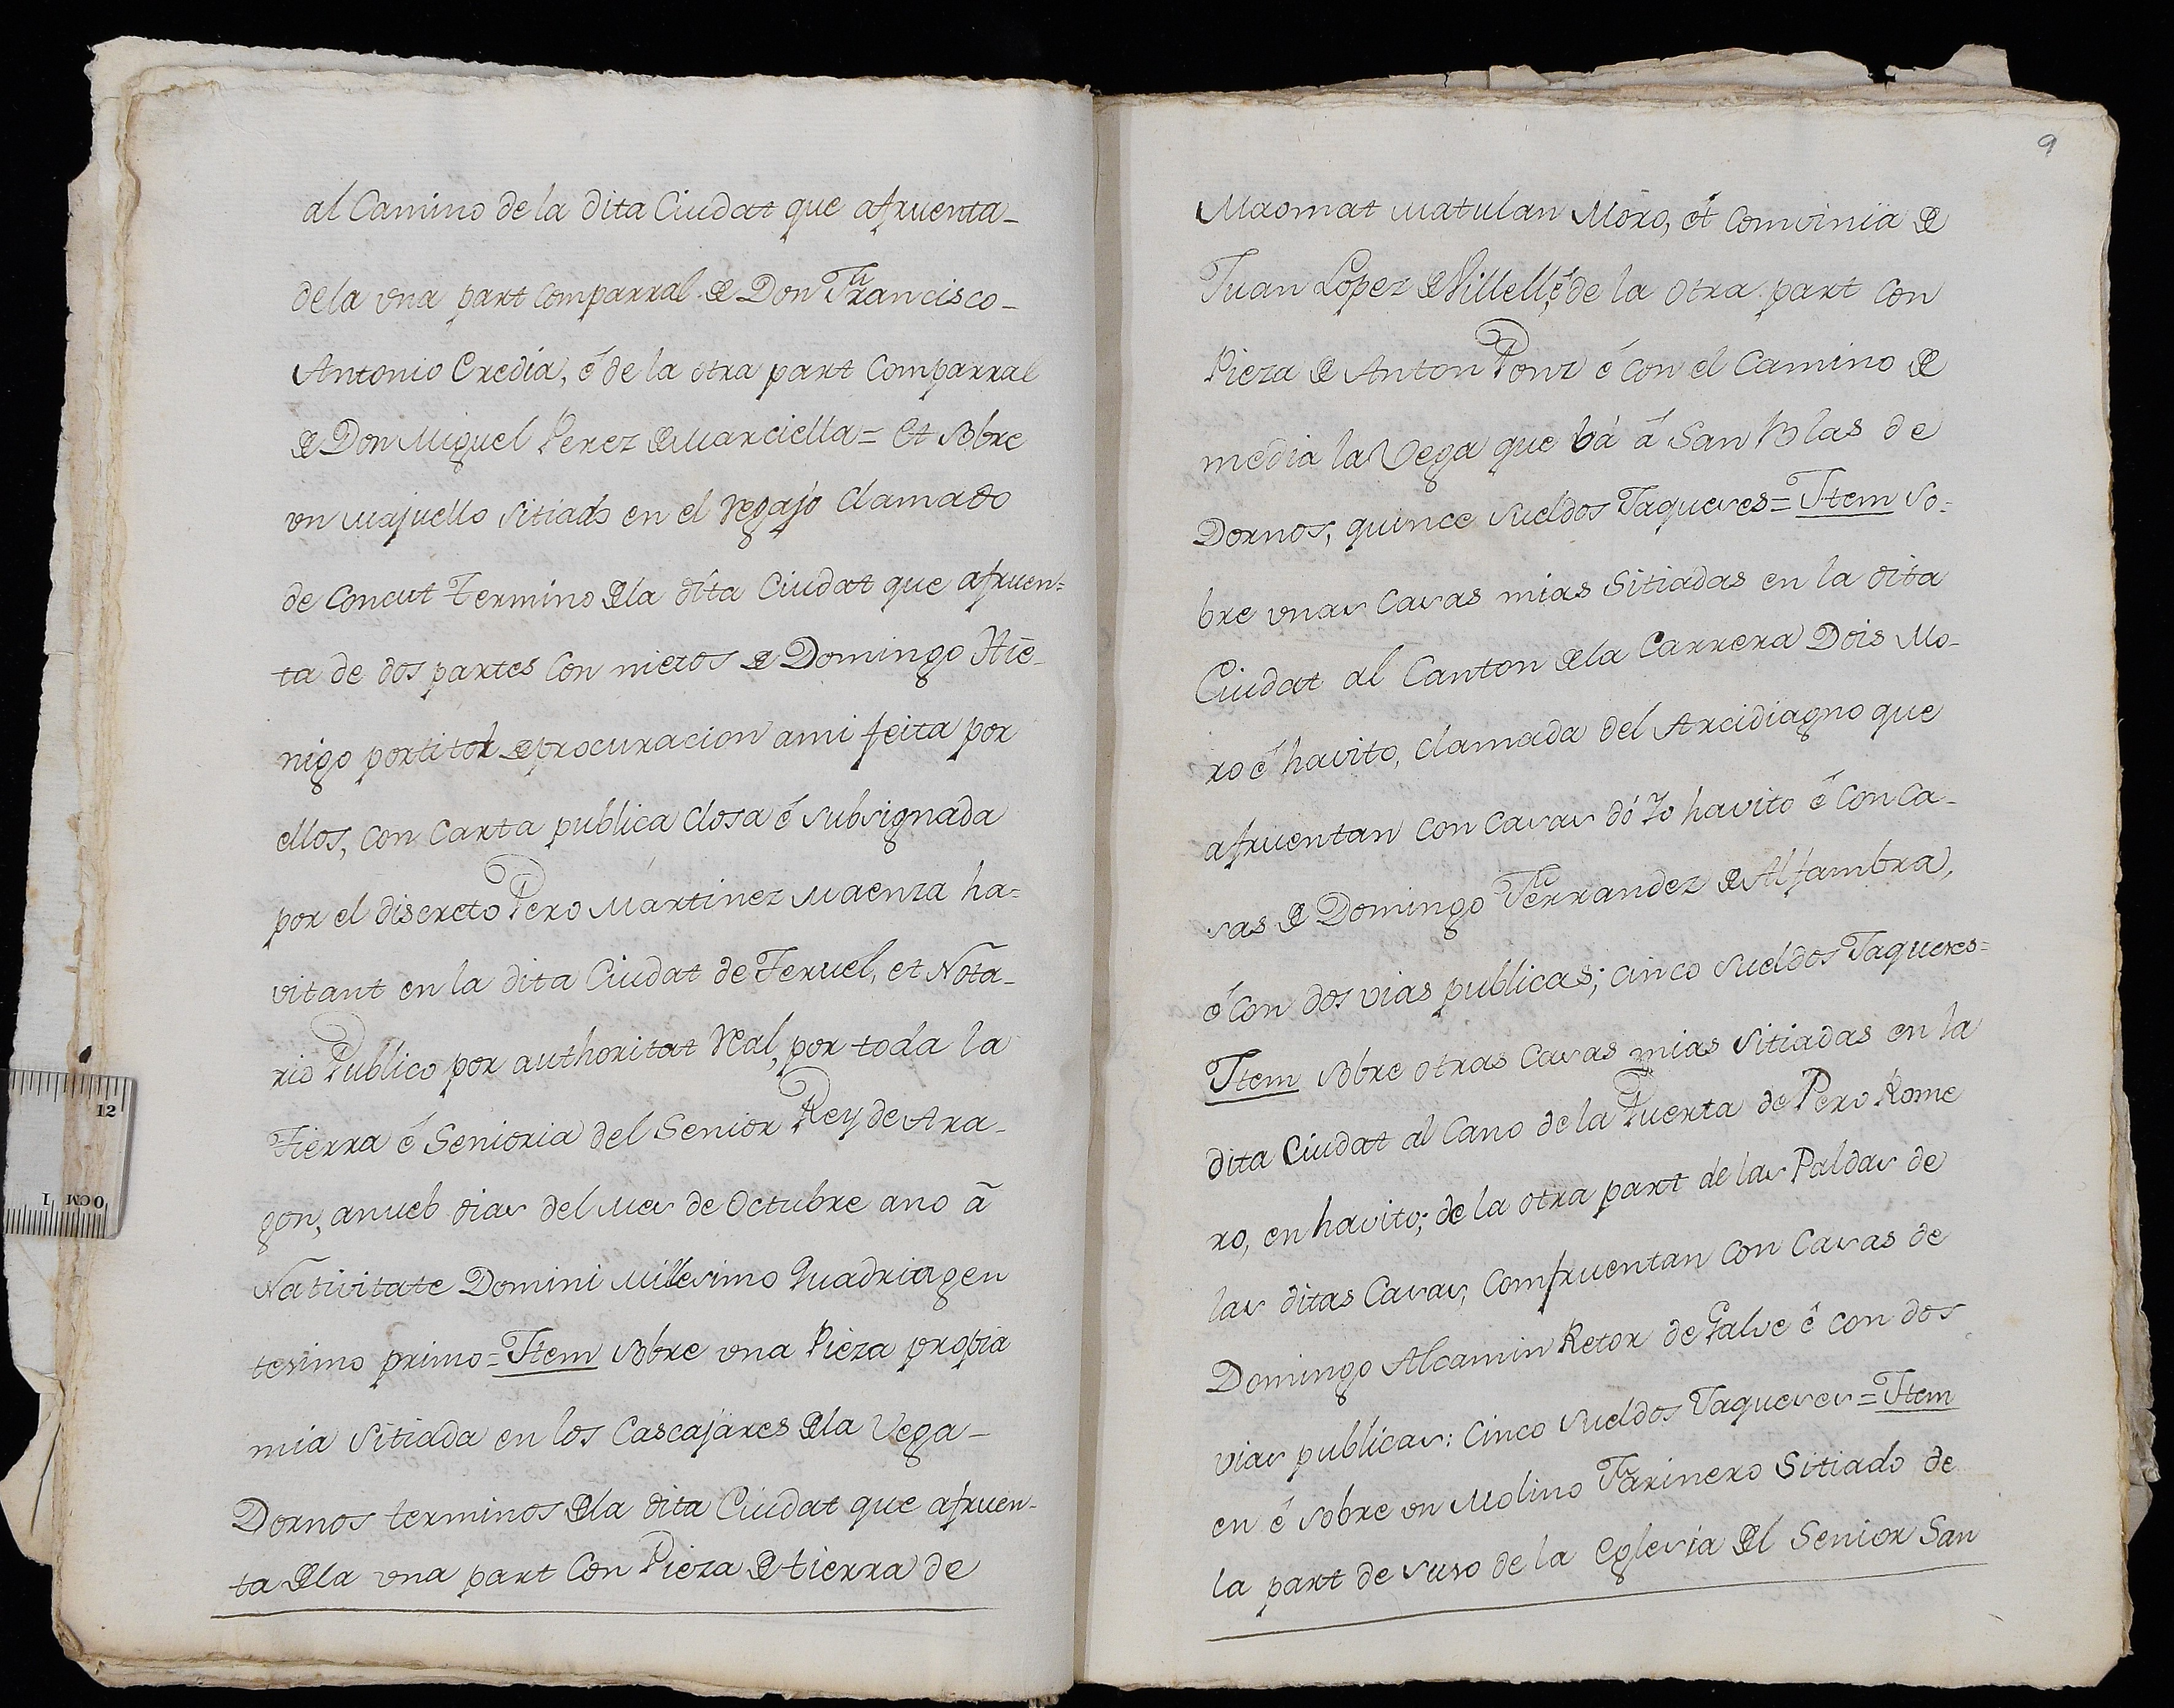 al Camino de la dita Ciudat que afruenta-
de la vna part comparral de Don Francisco-
Antonio Credia, é de la otra part Comparral
de Don Miguel Perez de Marciella= et sobre
vn Majuello sitiado en el regajo clamado
de Concut termino de la dita Ciudat que afruen=
ta de dos partes con nietos de Domingo Nie-
nigo por titol de procuracion a mi feita por
ellos, con Carta publica closa é subsignada
por el discreto Pero Martinez Maenza ha=
vitant en la dita Ciudat de Teruel, et Nota-
rio Publico por authoritat Real, por toda la
Tierra é Senioria del Senior Rey de Ara-
gon, a nueb dias del Mes de Octubre ano ā
Nativitate Domini Millesimo Quadringen
tesimo primo= Item sobre vna Pieza propia
mia sitiada en los Cascajares de la Vega-
Dornos terminos de la dita Ciudat que afruen-
ta de la vna part con Pieza de tierra de
9
Maomat Matulan Moro, et convinia de
Juan Lopez de Villell, é de la otra part con
Pieza de Anton Ponz é con el Camino de
media la Vega que bá á San Blas de
Dornos, quince sueldos Jaqueses= Item so=
bre vnas Casas mias Sitiadas en la dita
Ciudat al Canton de la Carrera Dois Mo-
ro é havito, clamada del Arcidiagno que
afruentan con casas dó Yo havito é con Ca-
sas de Domingo Ferrandez de Alfambra,
é con dos vias publicas; cinco sueldos Jaqueses=
Item sobre otras Casas mias sitiadas en la
dita Ciudat al Cano de la Puerta de Pero Rome
ro, en havito; de la otra part de las Paldas de
las ditas Casas, comfruentan con Casas de
Domingo Alcamin Retor de Galve é con dos
vias publicas: Cinco sueldos Jaqueses= Item
en é sobre vn Molino Farinero Sitiado de
la part de suso de la Eglesia del Senior San